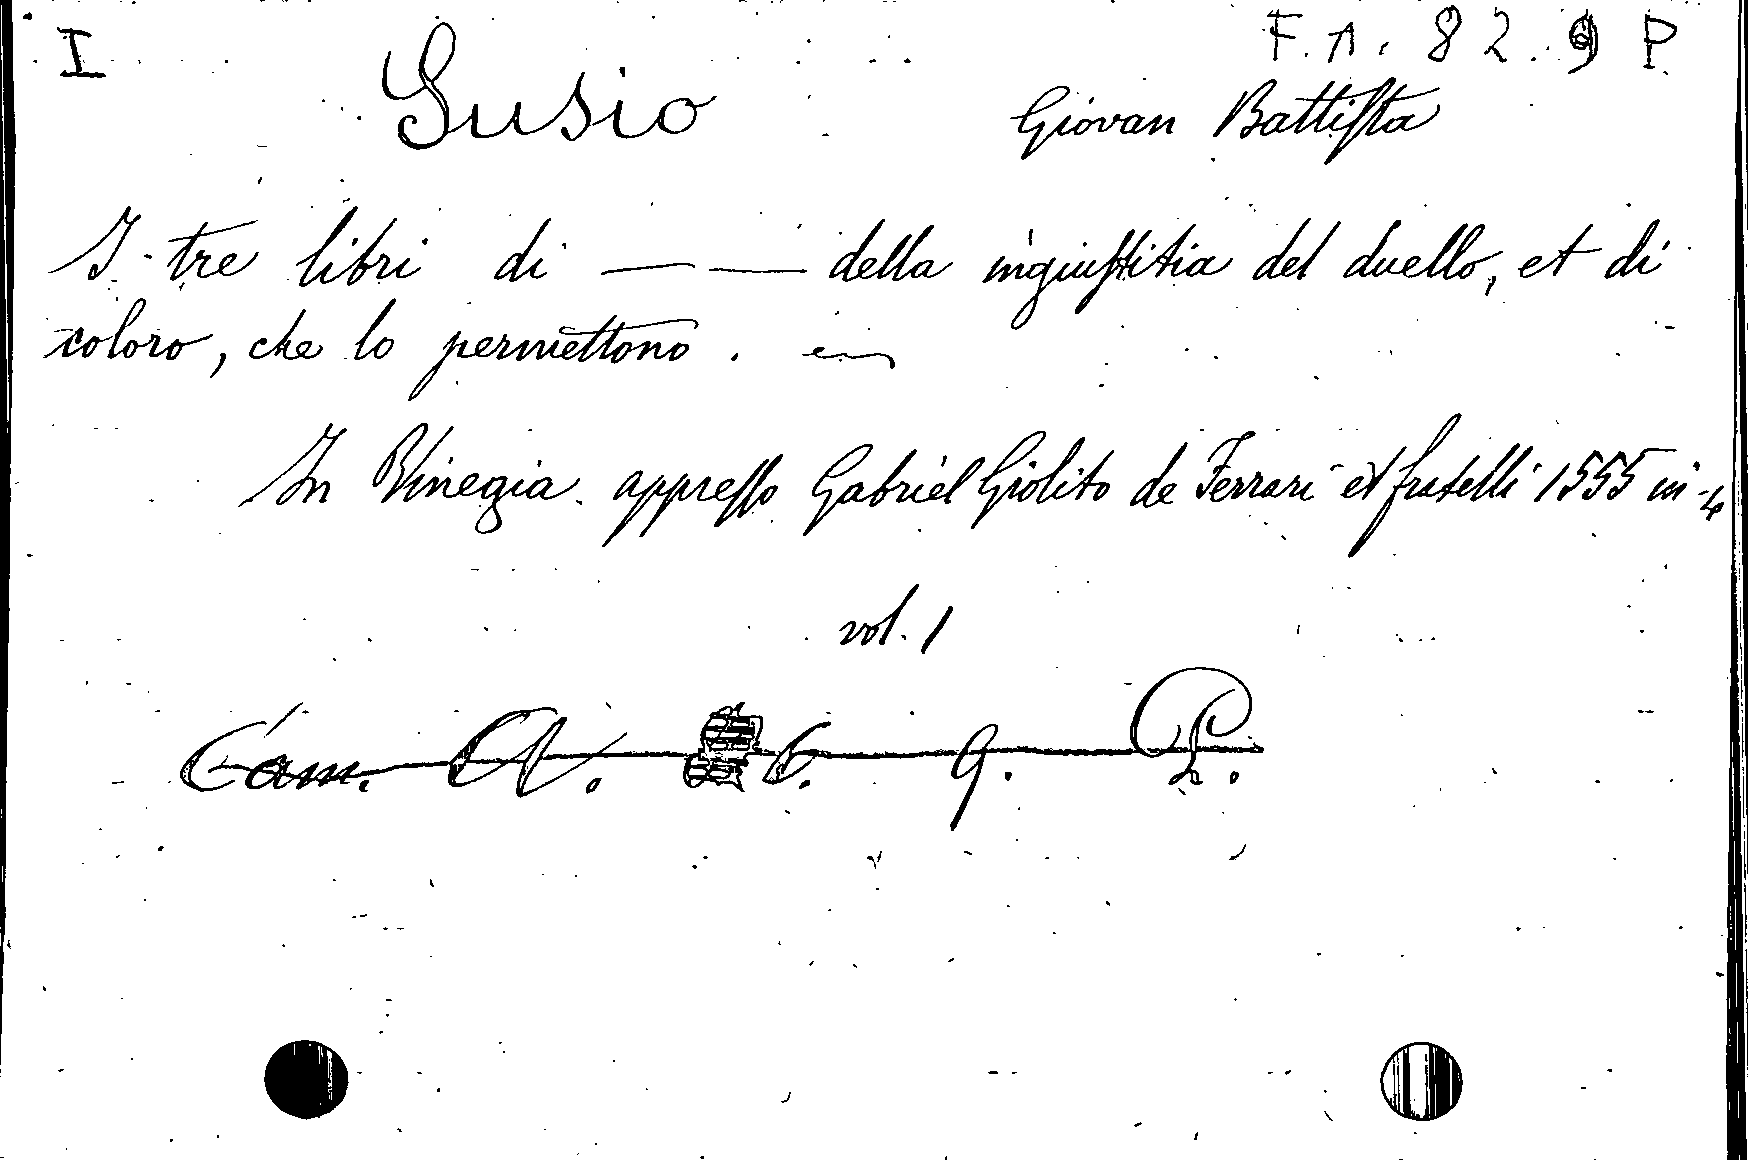 I F.A. 82. 9 P
Susio Giovan Battista
I tre libri di — — della ingiustitia del duello, et di
coloro, che lo permettono.
In Vinegia appresso Gabriel Giolito de Ferrari et fratelli 1555 in-4
vol. 1
Cam. N. 6. 9. P.